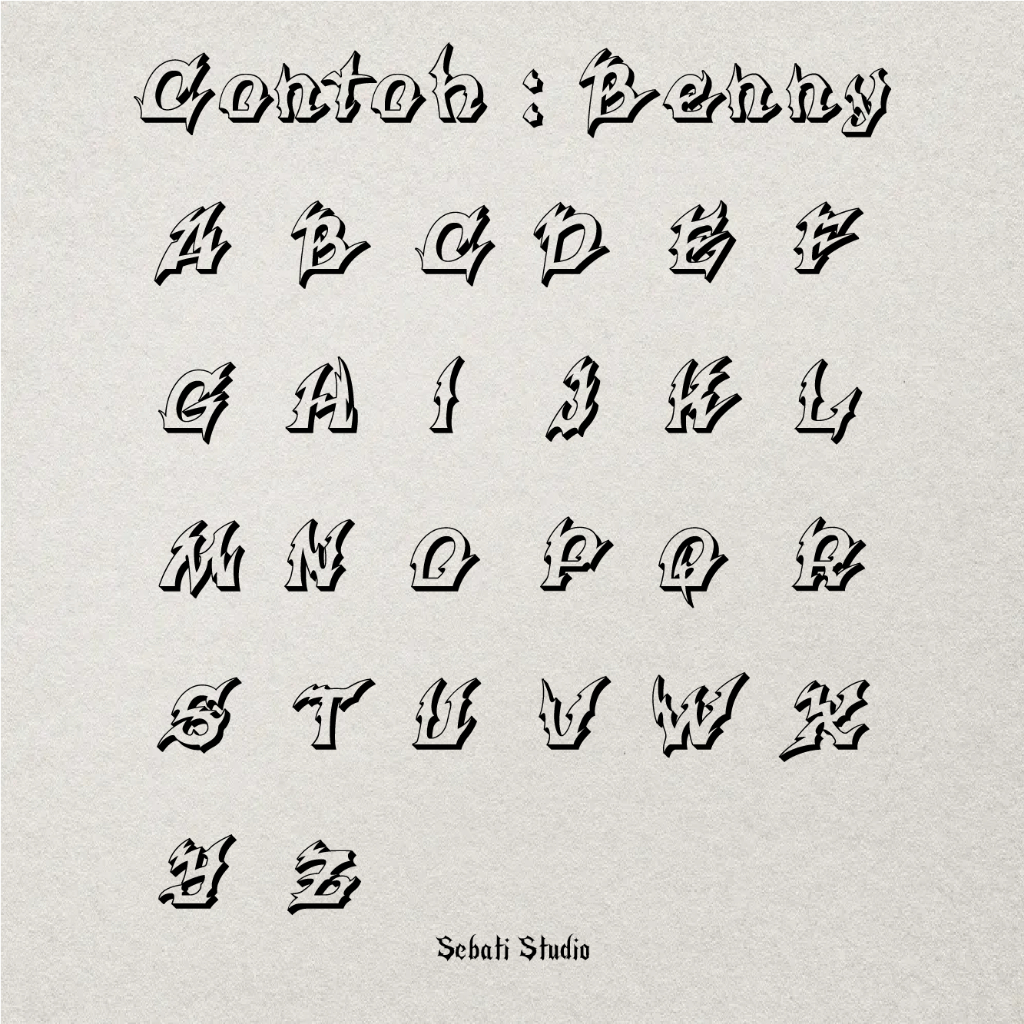 Contoh : Benny
A B C D E F
G H I J K L
M N O P Q R
S T U V W X
Y Z
Sebati Studio